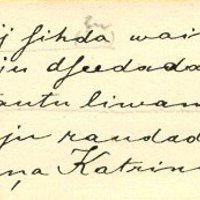 j sihda wai
ju dseedada
tautu liwam
ju raudad
ņa Katrin